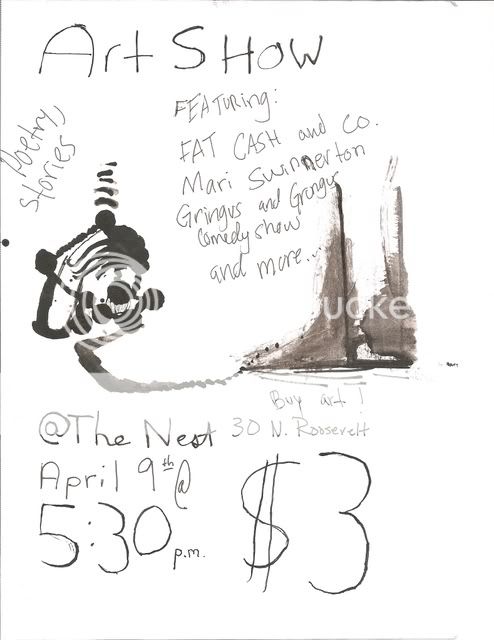 Art SHOW
Poetry,
Stories
FEATURING:
FAT CASH and CO.
Mari Swinnerton
Gringus and Grongus
Comedy show
and more...
Buy art!
@The Nest 30 N. Roosevelt
April 9th @
5:30 p.m.
$3